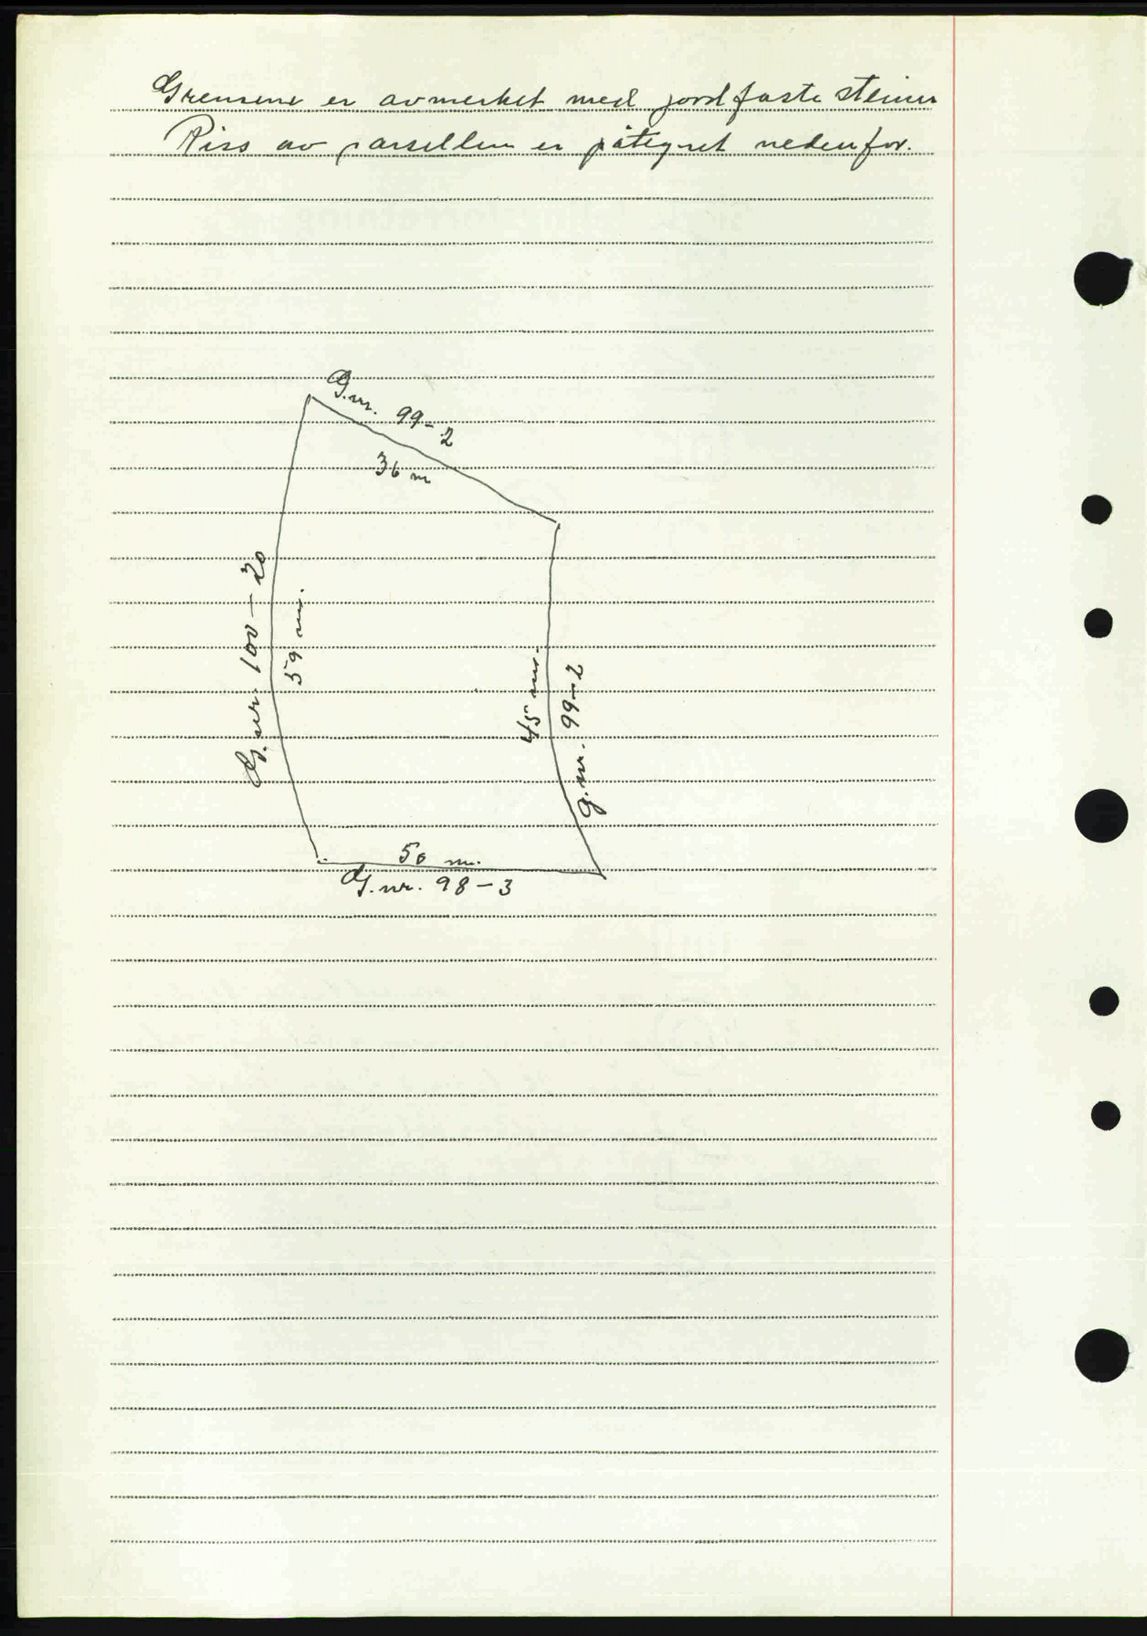 Grensene er avmerket med jordfaste steiner
Riss av parsellen er påtegnet nedenfor.
G.nr. 99-2
36 m
G.nr. 100-20
59 m.
45 m.
g.nr. 99-2
50 m.
G.nr. 98-3